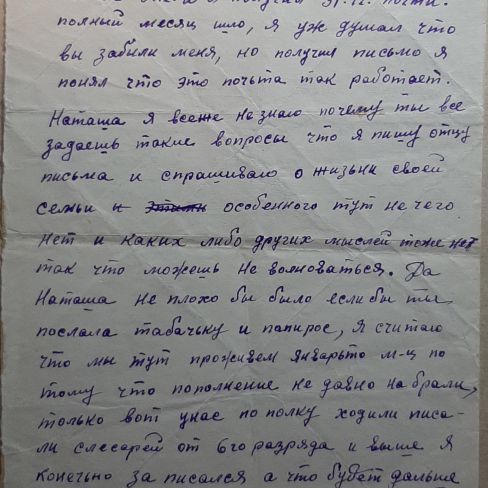 получил 31.12. почти.
полный месяц шло, я уже думал что
вы забыли меня, но получил письмо я
понял что это почьта так работает.
Наташа я всеже незнаю почему ты все
задаешь такие вопросы что я пишу отцу
письма и спрашиваю о жизьни своей
семьи и особенного тут не чего
нет и каких либо других мыслей тоже нет
так что можешь не волноваться. Да
Наташа не плохо бы было если бы ты
послала табачьку и папирос, я считаю
что мы тут проживем январьто м-ц по
тому что пополнение не давно набрали,
только вот унас по полку ходили писа-
ли слесарей от 6го разряда и выше я
конечьно за писался а что будет дальше